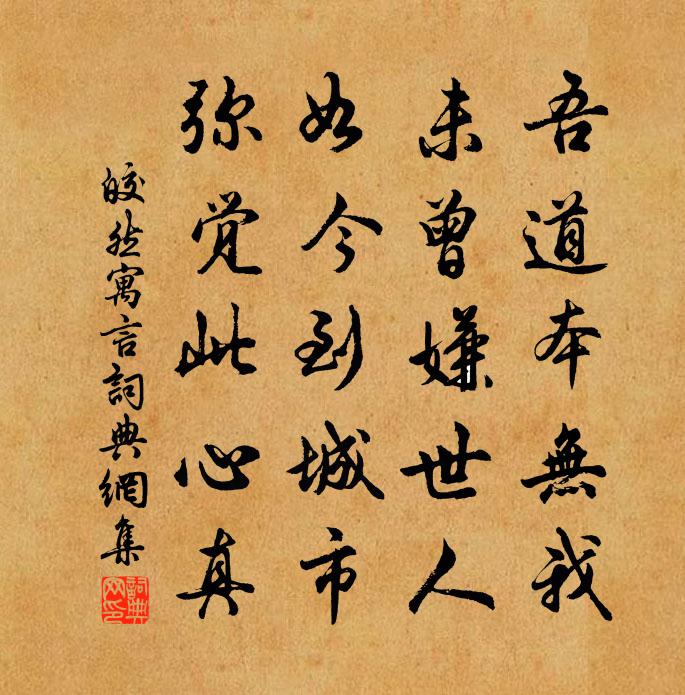 吾道本無我
未曾嫌世人
如今到城市
弥觉此心真
皎然寓言詞典網集
詞典
网印